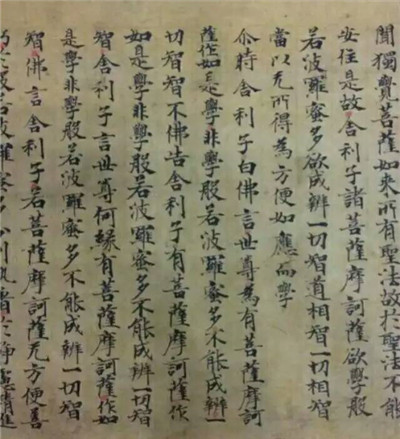 聞獨覺菩薩如來所有聖法故於聖法不能
安住是故舍利子諸菩薩摩訶薩欲學般
若波羅蜜多欲成辨一切智道相智一切相智
當以无所得為方便如應而學
尒時舍利子白佛言世尊為有菩薩摩訶
薩作如是學非學般若波羅蜜多不能成辨一
切智智不佛告舍利子有菩薩摩訶薩作
如是學非學般若波羅蜜多不能成辨一切智
智舍利子言世尊何緣有菩薩摩訶薩作如
是學非學般若波羅蜜多不能成辨一切智
智佛言舍利子若菩薩摩訶薩无方便善
般若波羅蜜多